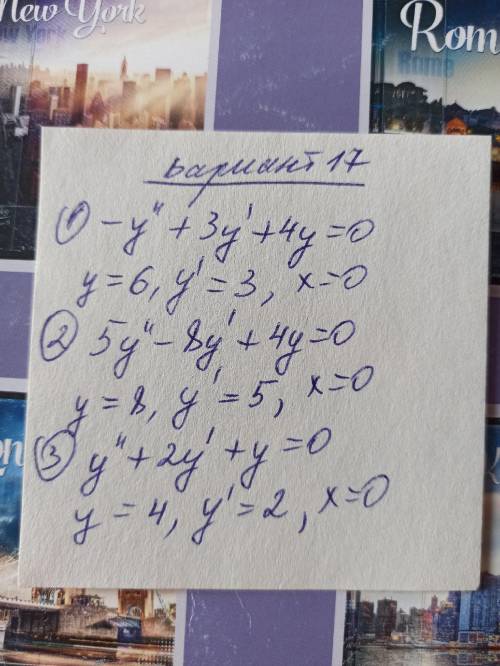 New York
New York
Rom
Rome
Вариант 17
① -y'' + 3y' + 4y = 0
y = 6, y' = 3, x = 0
② 5y'' - 8y' + 4y = 0
y = 8, y' = 5, x = 0
③ y'' + 2y' + y = 0
y = 4, y' = 2, x = 0